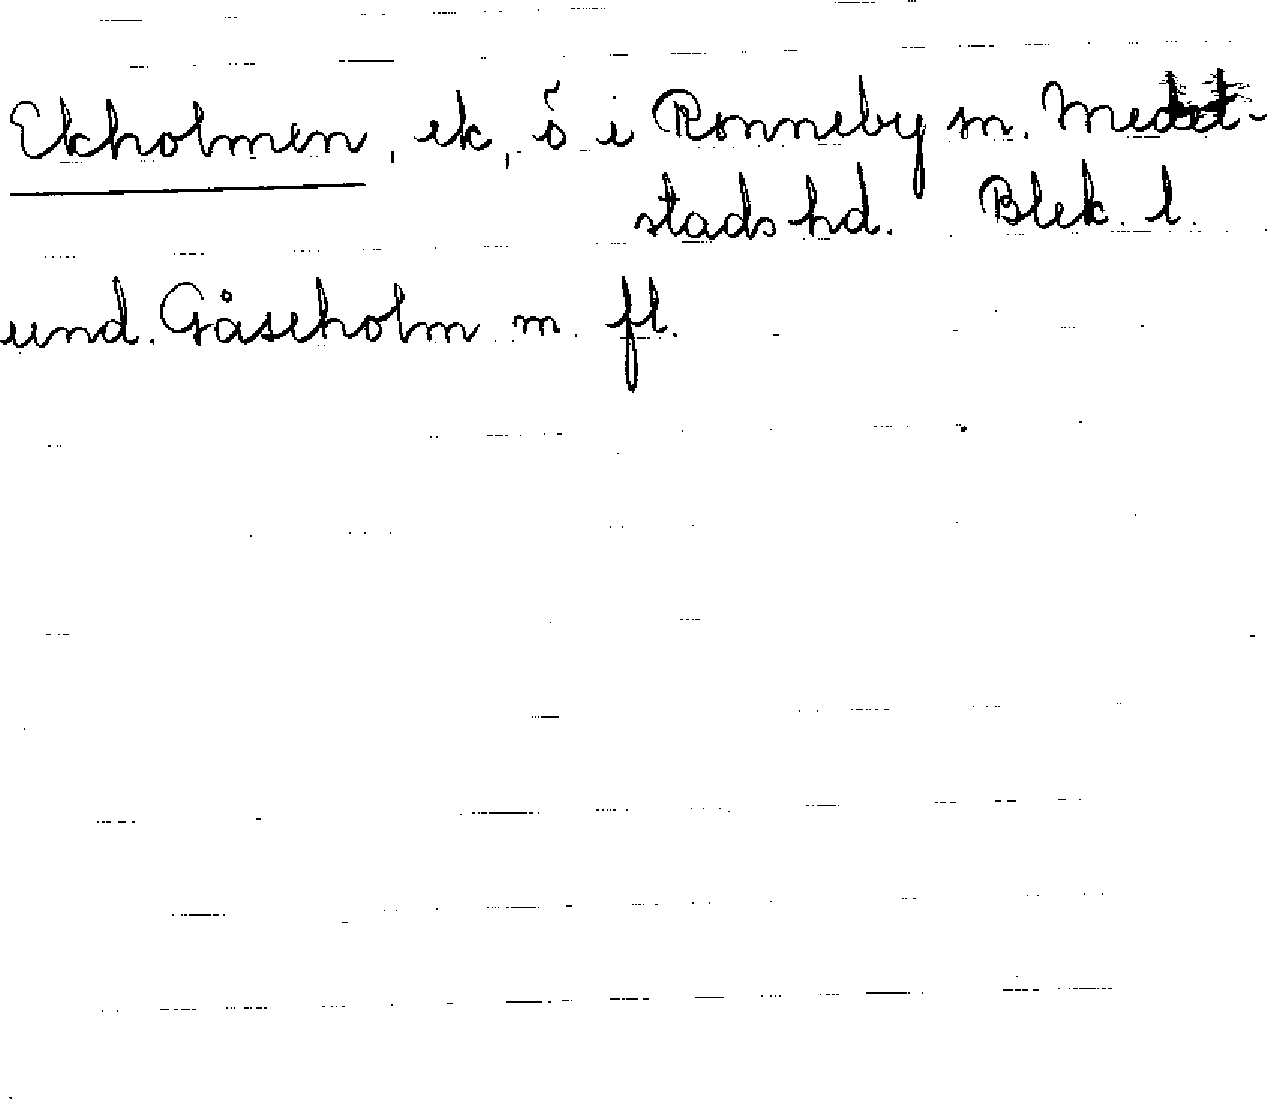 Ekholmen, ek, ö i Ronneby sn. Medel-
stads hd. Blek. l.
und. Gåseholm m. fl.